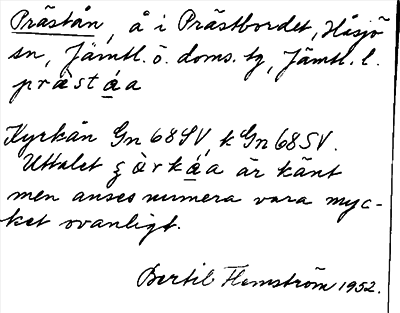 Präståṉ, å i Prästbordet, Håsjö
sn, Jämtl. ö. doms. tg, Jämtl. l.
präståa
Kyrkån Gn 68SV, k Gn 68SV.
Uttalet är känt
men anses numera vara myc-
ket ovanligt.
Bertil Flemström 1952.